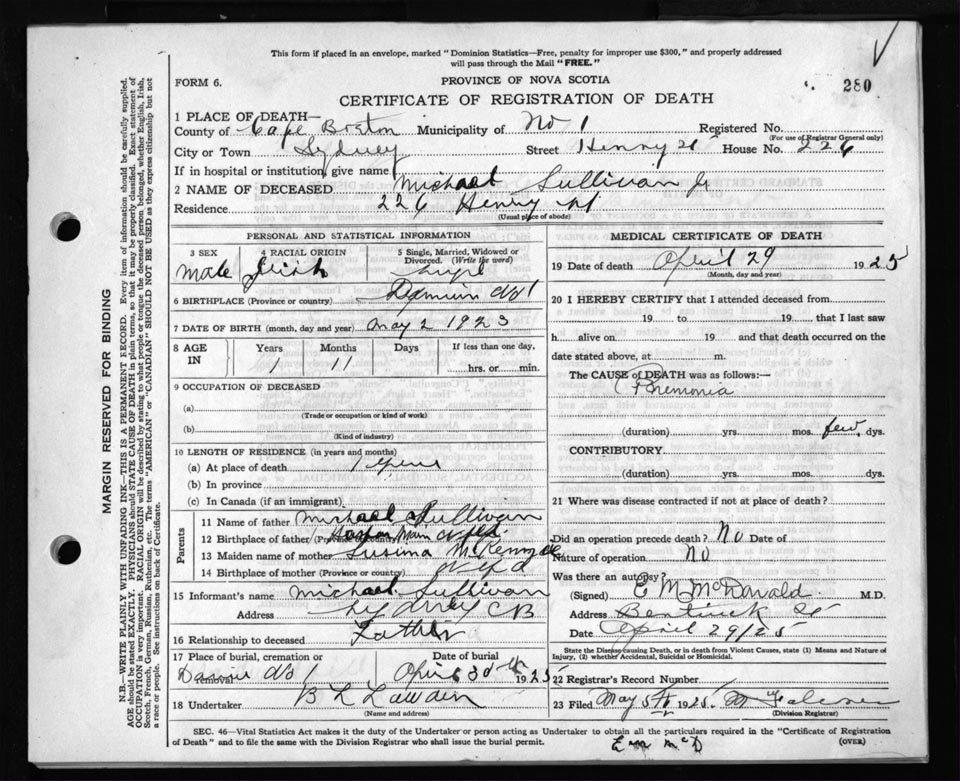 This form if placed in an envelope, marked "Dominion Statistics—Free, penalty for improper use $300," and properly addressed
will pass through the Mail "FREE."
FORM 6. PROVINCE OF NOVA SCOTIA 280
CERTIFICATE OF REGISTRATION OF DEATH
1 PLACE OF DEATH—
County of Cape Breton Municipality of No 1 Registered No.
(For use of Registrar General only)
City or Town Sydney Street Henry St House No. 226
If in hospital or institution, give name
2 NAME OF DECEASED Michael Sullivan Jr
Residence 226 Henry St
(Usual place of abode)
PERSONAL AND STATISTICAL INFORMATION
3 SEX 4 RACIAL ORIGIN 5 Single, Married, Widowed or
Divorced. (Write the word)
Male Irish Single
6 BIRTHPLACE (Province or country) Dominion No 1
7 DATE OF BIRTH (month, day and year) May 2 1923
8 AGE IN Years Months Days If less than one day,
1 11 hrs. or min.
9 OCCUPATION OF DECEASED
(a)
(Trade or occupation or kind of work)
(b)
(Kind of industry)
10 LENGTH OF RESIDENCE (in years and months)
(a) At place of death 1 year
(b) In province
(c) In Canada (if an immigrant)
Parents
11 Name of father Michael Sullivan
12 Birthplace of father (Province or country) Nfld
13 Maiden name of mother Susina McKenzie
14 Birthplace of mother (Province or country) Nfld
15 Informant's name Michael Sullivan
Address Sydney CB
16 Relationship to deceased Father
17 Place of burial, cremation or Date of burial
No 1 April 30th 1925
18 Undertaker B L
(Name and address)
MEDICAL CERTIFICATE OF DEATH
19 Date of death April 29 1925
(Month, day and year)
20 I HEREBY CERTIFY that I attended deceased from
19 to 19 that I last saw
h alive on 19 and that death occurred on the
date stated above, at m.
The CAUSE of DEATH was as follows:—
Pnemonia
(duration) yrs. mos. few dys.
CONTRIBUTORY
(duration) yrs. mos. dys.
21 Where was disease contracted if not at place of death?
Did an operation precede death? No Date of
Nature of operation No
Was there an autopsy?
(Signed) E M McDonald M.D.
Address Bentinck St
Date April 29/25
State the Disease causing Death, or in death from Violent Causes, state (1) Means and Nature of
Injury, (2) whether Accidental, Suicidal or Homicidal.
22 Registrar's Record Number
23 Filed May 5th 1925.
(Division Registrar)
SEC. 46—Vital Statistics Act makes it the duty of the Undertaker or person acting as Undertaker to obtain all the particulars required in the "Certificate of Registration
of Death" and to file the same with the Division Registrar who shall issue the burial permit. (OVER)
E M McD
MARGIN RESERVED FOR BINDING
N.B.—WRITE PLAINLY WITH UNFADING INK—THIS IS A PERMANENT RECORD. Every item of information should be carefully supplied.
AGE should be stated EXACTLY. PHYSICIANS should STATE CAUSE OF DEATH in plain terms, so that it may be properly classified. Exact statement of
OCCUPATION is very important. RACIAL ORIGIN will be described by stating to what people or tongue the deceased person belonged, whether English, Irish,
Scotch, French, German, Russian, Ruthenian, etc. The terms "AMERICAN" or "CANADIAN" SHOULD NOT BE USED as they express citizenship but not
a race or people. See instructions on back of Certificate.